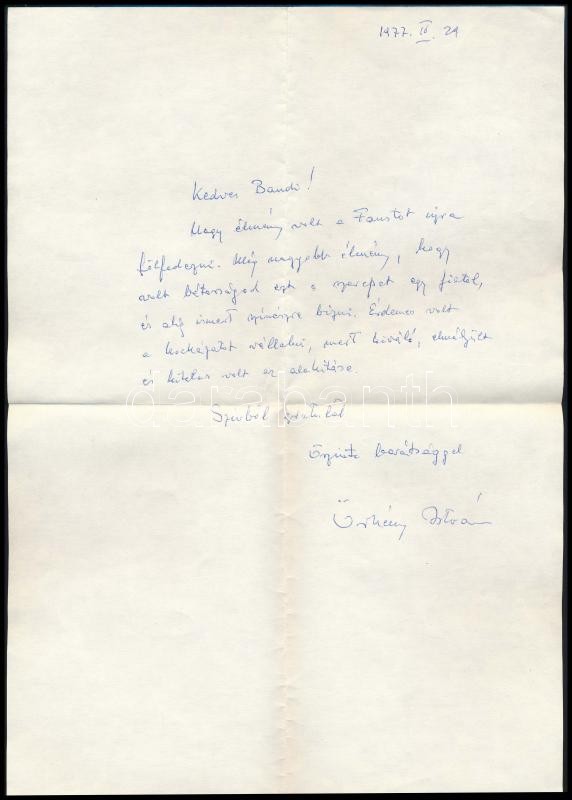 1977. IV. 29
Kedves Bandi!
Nagy élmény volt a Faustot újra
fölfedezni. Még nagyobb élmény, hogy
volt bátorságod ezt a szerepet egy fiatal,
és alig ismert színészre bízni. Érdemes volt
a kockázatot vállalni, mert kiváló, elmélyült
és hiteles volt az alakítása.
Szivből gratulál
Őszinte barátsággel
Örkény István
darabanth.com